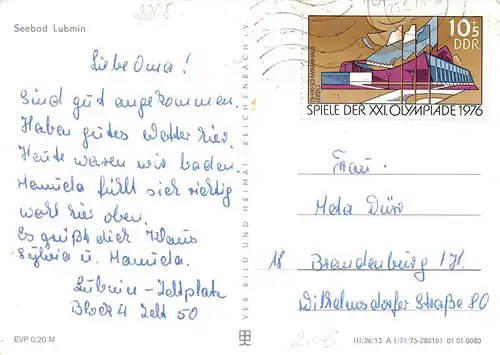 2205
Seebad Lubmin
Liebe Oma!
Sind gut angekommen.
Haben gutes Wetter hier.
Heute waren wir baden.
Manuela fühlt sich richtig
wohl hier oben.
Es grüßt dich Klaus
Sylvia u. Manuela.
Lubmin-Zeltplatz
Block 4 Zelt 50
EVP 0,20 M
VEB BILD UND HEIMAT · REICHENBACH i. V.
10+5
DDR
SPIELE DER XXI. OLYMPIADE 1976
Frau
Meta Dürr
18 Brandenburg / H.
Wilhelmsdorfer Straße 80
III/26/13 A 1/71/75-280161 01 01 0080